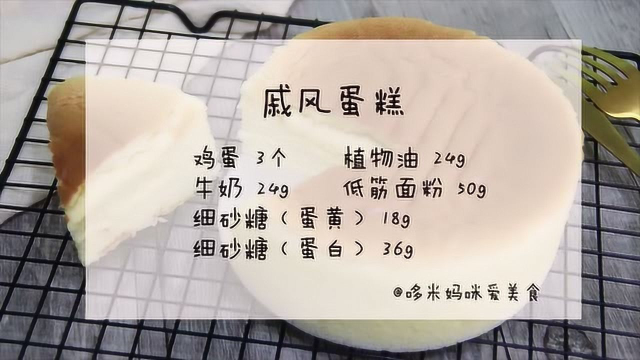 戚风蛋糕
鸡蛋 3个 植物油 24g
牛奶 24g 低筋面粉 50g
细砂糖（蛋黄）18g
细砂糖（蛋白）36g
@哆米妈咪爱美食